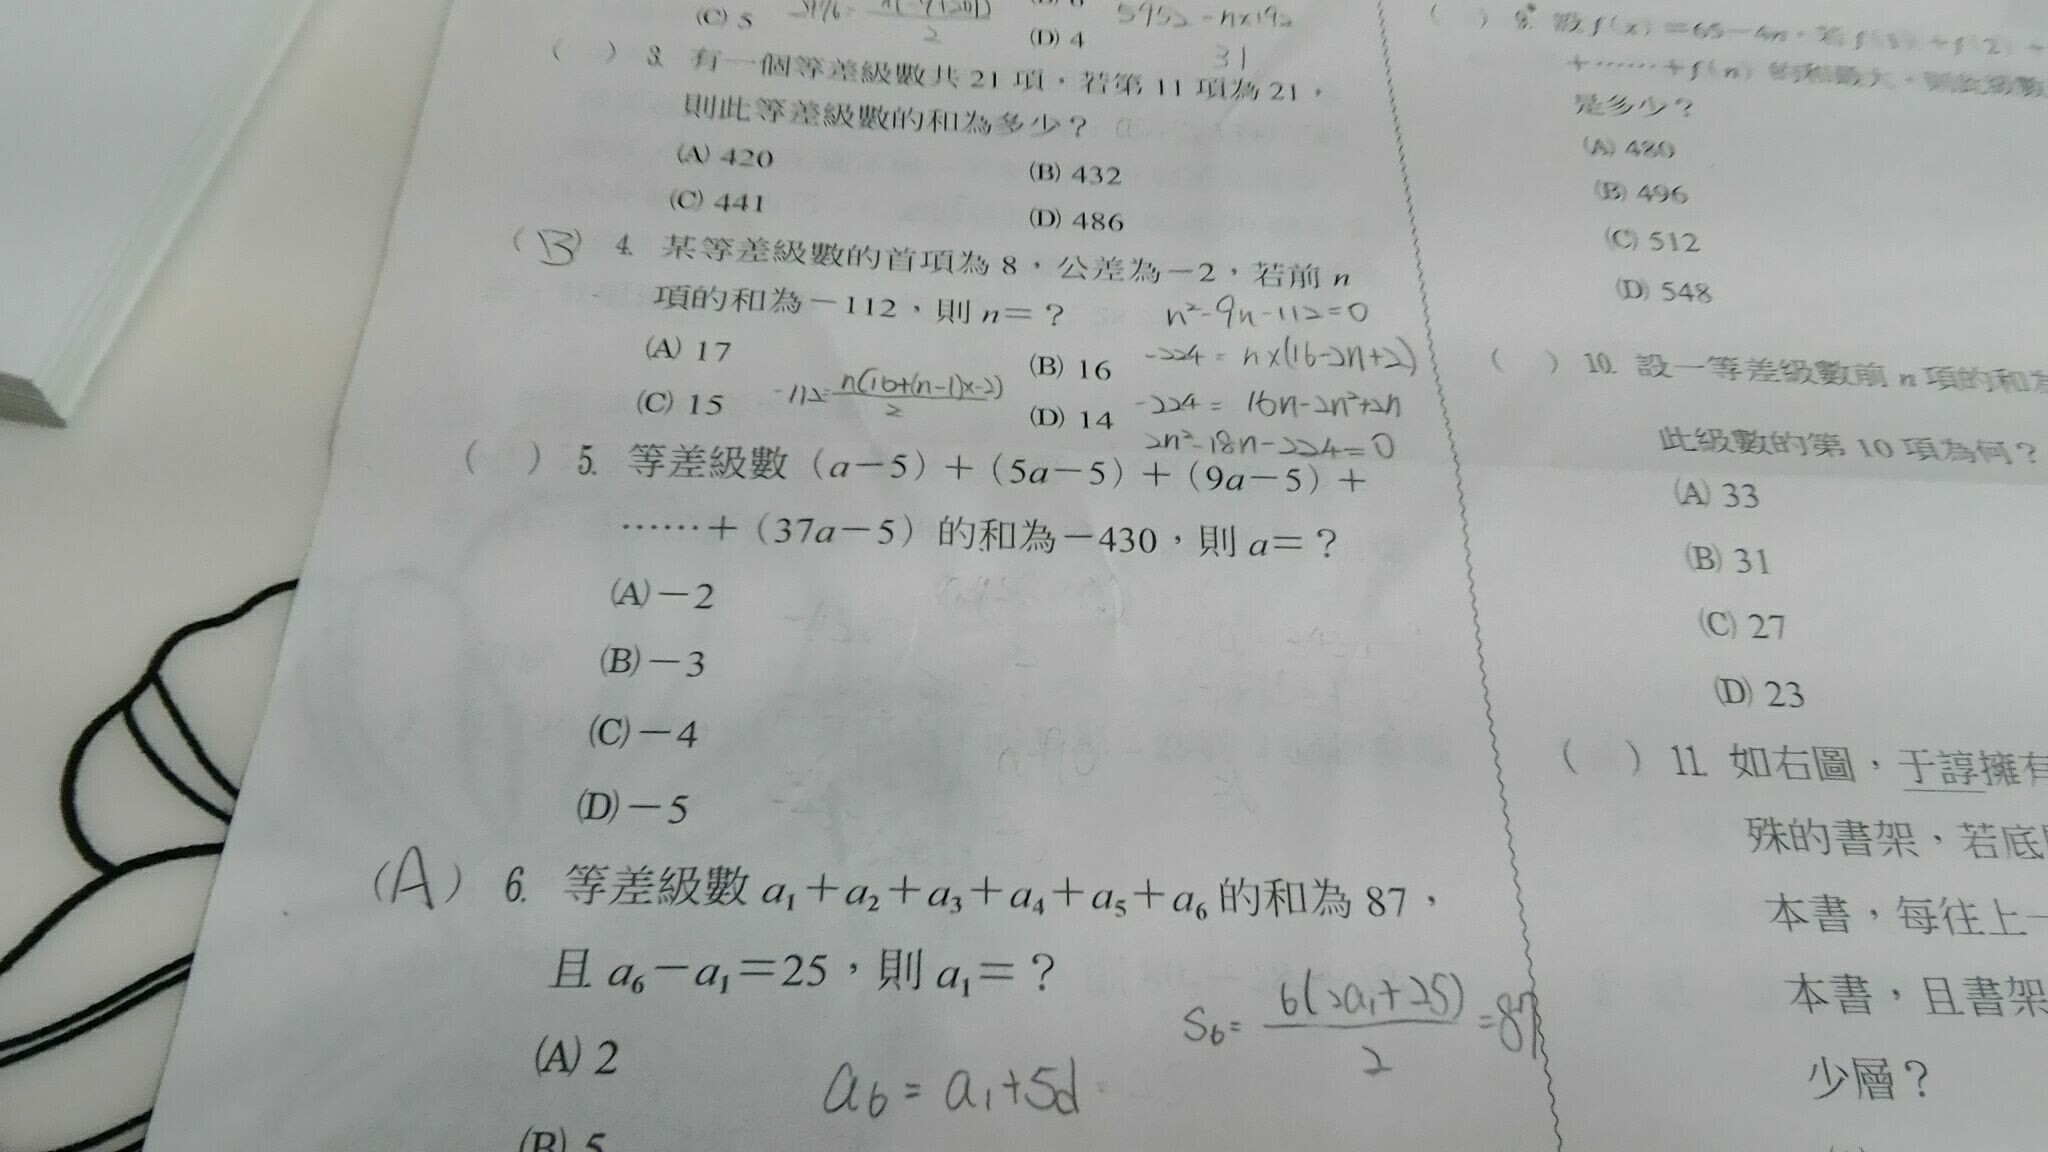 (C) 5
(D) 4
5952 = n×192
31
( ) 3. 有一個等差級數共 21 項，若第 11 項為 21，
則此等差級數的和為多少？
(A) 420 (B) 432
(C) 441 (D) 486
(B) 4. 某等差級數的首項為 8，公差為－2，若前 n
項的和為－112，則 n＝？
n²-9n-112=0
(A) 17 (B) 16
-224 = n×(16-2n+2)
(C) 15 (D) 14
-112=n(16+(n-1)×-2)/2
-224 = 16n-2n²+2n
2n²-18n-224=0
( ) 5. 等差級數（a－5）＋（5a－5）＋（9a－5）＋
……＋（37a－5）的和為－430，則 a＝？
(A)－2
(B)－3
(C)－4
(D)－5
(A) 6. 等差級數 a₁＋a₂＋a₃＋a₄＋a₅＋a₆ 的和為 87，
且 a₆－a₁＝25，則 a₁＝？
S₆= 6(2a₁+25)/2 =87
(A) 2
a₆ = a₁+5d
(B) 5
( ) 9. 設 f(x)＝65－4n，若 f(1)＋f(2)＋
＋……＋f(n) 的和最大，則此級數
是多少？
(A) 480
(B) 496
(C) 512
(D) 548
( ) 10. 設一等差級數前 n 項的和為
此級數的第 10 項為何？
(A) 33
(B) 31
(C) 27
(D) 23
( ) 11. 如右圖，于諄擁有
殊的書架，若底
本書，每往上一
本書，且書架
少層？